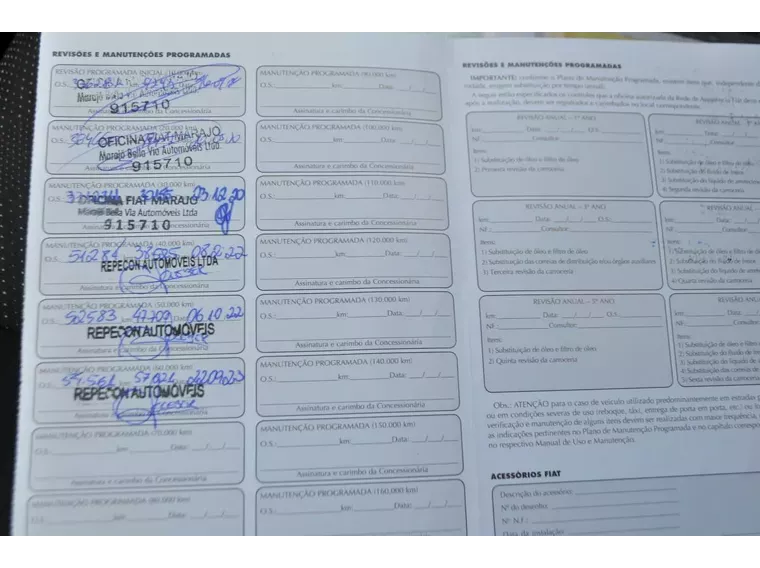 REVISÕES E MANUTENÇÕES PROGRAMADAS
REVISÃO PROGRAMADA INICIAL (10.000 km)
O.S.:
Marajó Bella Via Automóveis Ltda
915710
Assinatura e carimbo da Concessionária
MANUTENÇÃO PROGRAMADA (20.000 km)
O.S.:
OFICINA FIAT MARAJO
Marajó Bella Via Automóveis Ltda
915710
MANUTENÇÃO PROGRAMADA (30.000 km)
23.12.20
OFICINA FIAT MARAJO
Marajó Bella Via Automóveis Ltda
915710
MANUTENÇÃO PROGRAMADA (40.000 km)
O.S.:
REPECON AUTOMÓVEIS LTDA
Assinatura e carimbo da Concessionária
MANUTENÇÃO PROGRAMADA (50.000 km)
O.S.: 52583 47709 06.10.22
REPECON AUTOMÓVEIS
Assinatura e carimbo da Concessionária
MANUTENÇÃO PROGRAMADA (60.000 km)
O.S.: 22.09.23
REPECON AUTOMÓVEIS
MANUTENÇÃO PROGRAMADA (70.000 km)
O.S.: km: Data: __/__/__
Assinatura e carimbo da Concessionária
MANUTENÇÃO PROGRAMADA (80.000 km)
O.S.: km: Data: __/__/__
MANUTENÇÃO PROGRAMADA (90.000 km)
O.S.: km: Data: __/__/__
Assinatura e carimbo da Concessionária
MANUTENÇÃO PROGRAMADA (100.000 km)
O.S.: km: Data: __/__/__
Assinatura e carimbo da Concessionária
MANUTENÇÃO PROGRAMADA (110.000 km)
O.S.: km: Data: __/__/__
Assinatura e carimbo da Concessionária
MANUTENÇÃO PROGRAMADA (120.000 km)
O.S.: km: Data: __/__/__
Assinatura e carimbo da Concessionária
MANUTENÇÃO PROGRAMADA (130.000 km)
O.S.: km: Data: __/__/__
Assinatura e carimbo da Concessionária
MANUTENÇÃO PROGRAMADA (140.000 km)
O.S.: km: Data: __/__/__
Assinatura e carimbo da Concessionária
MANUTENÇÃO PROGRAMADA (150.000 km)
O.S.: km: Data: __/__/__
Assinatura e carimbo da Concessionária
MANUTENÇÃO PROGRAMADA (160.000 km)
O.S.: km: Data: __/__/__
REVISÕES E MANUTENÇÕES PROGRAMADAS
IMPORTANTE: conforme o Plano de Manutenção Programada, existem itens que, independente d
rodada, exigem substituição por tempo (anual).
A seguir estão especificados os controles que a oficina autorizada da Rede de Assistência Fiat deve
após a realização, devem ser registrados e carimbados no local correspondente.
REVISÃO ANUAL – 1º ANO
km: Data: __/__/__ O.S.:
NF: Consultor:
Itens:
1) Substituição de óleo e filtro de óleo
2) Primeira revisão da carroceria
REVISÃO ANUAL
km: Data:
NF: Consultor:
Itens:
1) Substituição de óleo e filtro de
2) Substituição do filtro de
3) Substituição do líquido de
4) Segunda revisão da carroceria
REVISÃO ANUAL – 3º ANO
km: Data: __/__/__ O.S.:
NF: Consultor:
Itens:
1) Substituição de óleo e filtro de óleo
2) Substituição das correias de distribuição e/ou órgãos auxiliares
3) Terceira revisão da carroceria
REVISÃO ANUAL
km: Data:
NF: Consultor:
Itens:
1) Substituição de óleo e filtro de
2) Substituição do fluido de
3) Substituição do líquido de
4) Quarta revisão da carroceria
REVISÃO ANUAL – 5º ANO
km: Data: __/__/__ O.S.:
NF: Consultor:
Itens:
1) Substituição de óleo e filtro de óleo
2) Quinta revisão da carroceria
REVISÃO ANUAL
km: Data:
NF: Consultor:
Itens:
1) Substituição de óleo e filtro
2) Substituição do fluido de
3) Substituição do líquido de
5) Sexta revisão da carroceria
Obs.: ATENÇÃO para o caso de veículo utilizado predominantemente em estradas
ou em condições severas de uso (reboque, táxi, entrega de porta em porta, etc.) ou
verificação e manutenção de alguns itens devem ser realizadas com maior frequência,
as indicações pertinentes no Plano de Manutenção Programada e no capítulo
no respectivo Manual de Uso e Manutenção.
ACESSÓRIOS FIAT
Descrição do acessório:
Nº do desenho:
Nº N.F.:
Data da instalação: